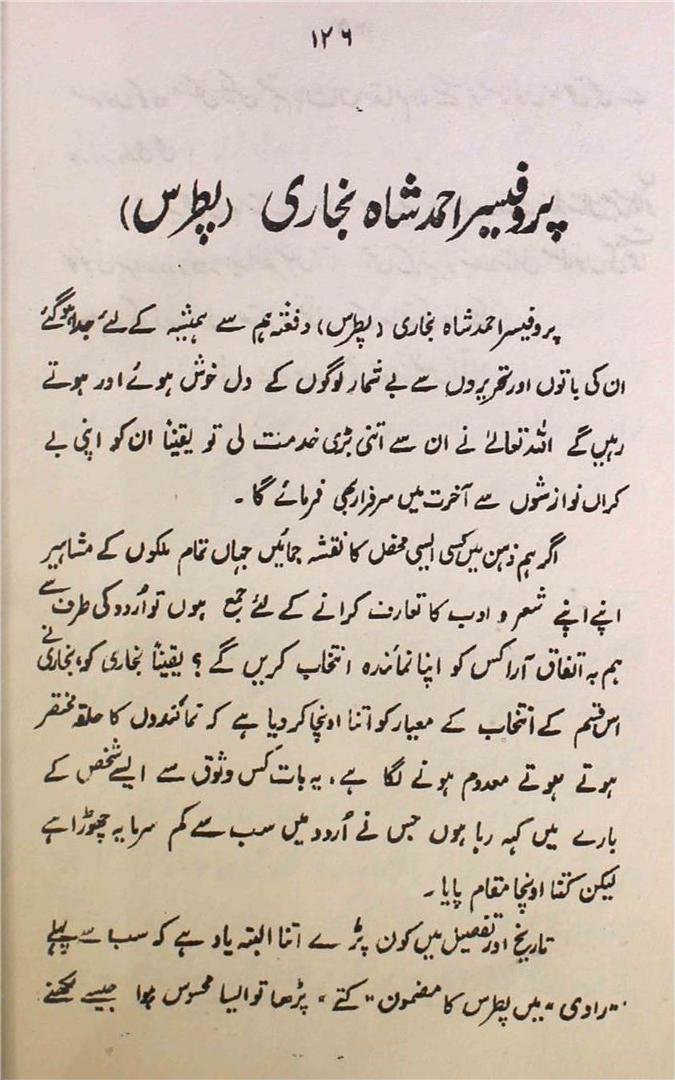 ۱۲۶
پروفیسر احمد شاہ بخاری (پطرس)
پروفیسر احمد شاہ بخاری (پطرس) دفعتہ ہم سے ہمیشہ کے لئے جدا ہوگئے
ان کی باتوں اور تحریروں سے بے شمار لوگوں کے دل خوش ہوئے اور ہوتے
رہیں گے اللہ تعالیٰ نے ان سے اتنی بڑی خدمت لی تو یقیناً ان کو اپنی بے
کراں نوازشوں سے آخرت میں سرفراز بھی فرمائے گا ۔
اگر ہم ذہن میں کسی ایسی محفل کا نقشہ جمائیں جہاں تمام ملکوں کے مشاہیر
اپنے اپنے شعر و ادب کا تعارف کرانے کے لئے جمع ہوں تو اُردو کی طرف سے
ہم بہ اتفاق آرا کس کو اپنا نمائندہ انتخاب کریں گے ؟ یقیناً بخاری کو، بخاری نے
اس قسم کے انتخاب کے معیار کو اتنا اونچا کر دیا ہے کہ نمائندوں کا حلقہ مختصر
ہوتے ہوتے معدوم ہونے لگا ہے، یہ بات کس وثوق سے ایسے شخص کے
بارے میں کہہ رہا ہوں جس نے اُردو میں سب سے کم سرمایہ چھوڑا ہے
لیکن کتنا اونچا مقام پایا ۔
تاریخ اور تفصیل میں کون پڑے اتنا البتہ یاد ہے کہ سب سے پہلے
"راوی" میں پطرس کا مضمون "کتے" پڑھا تو ایسا محسوس ہوا جیسے لکھنے